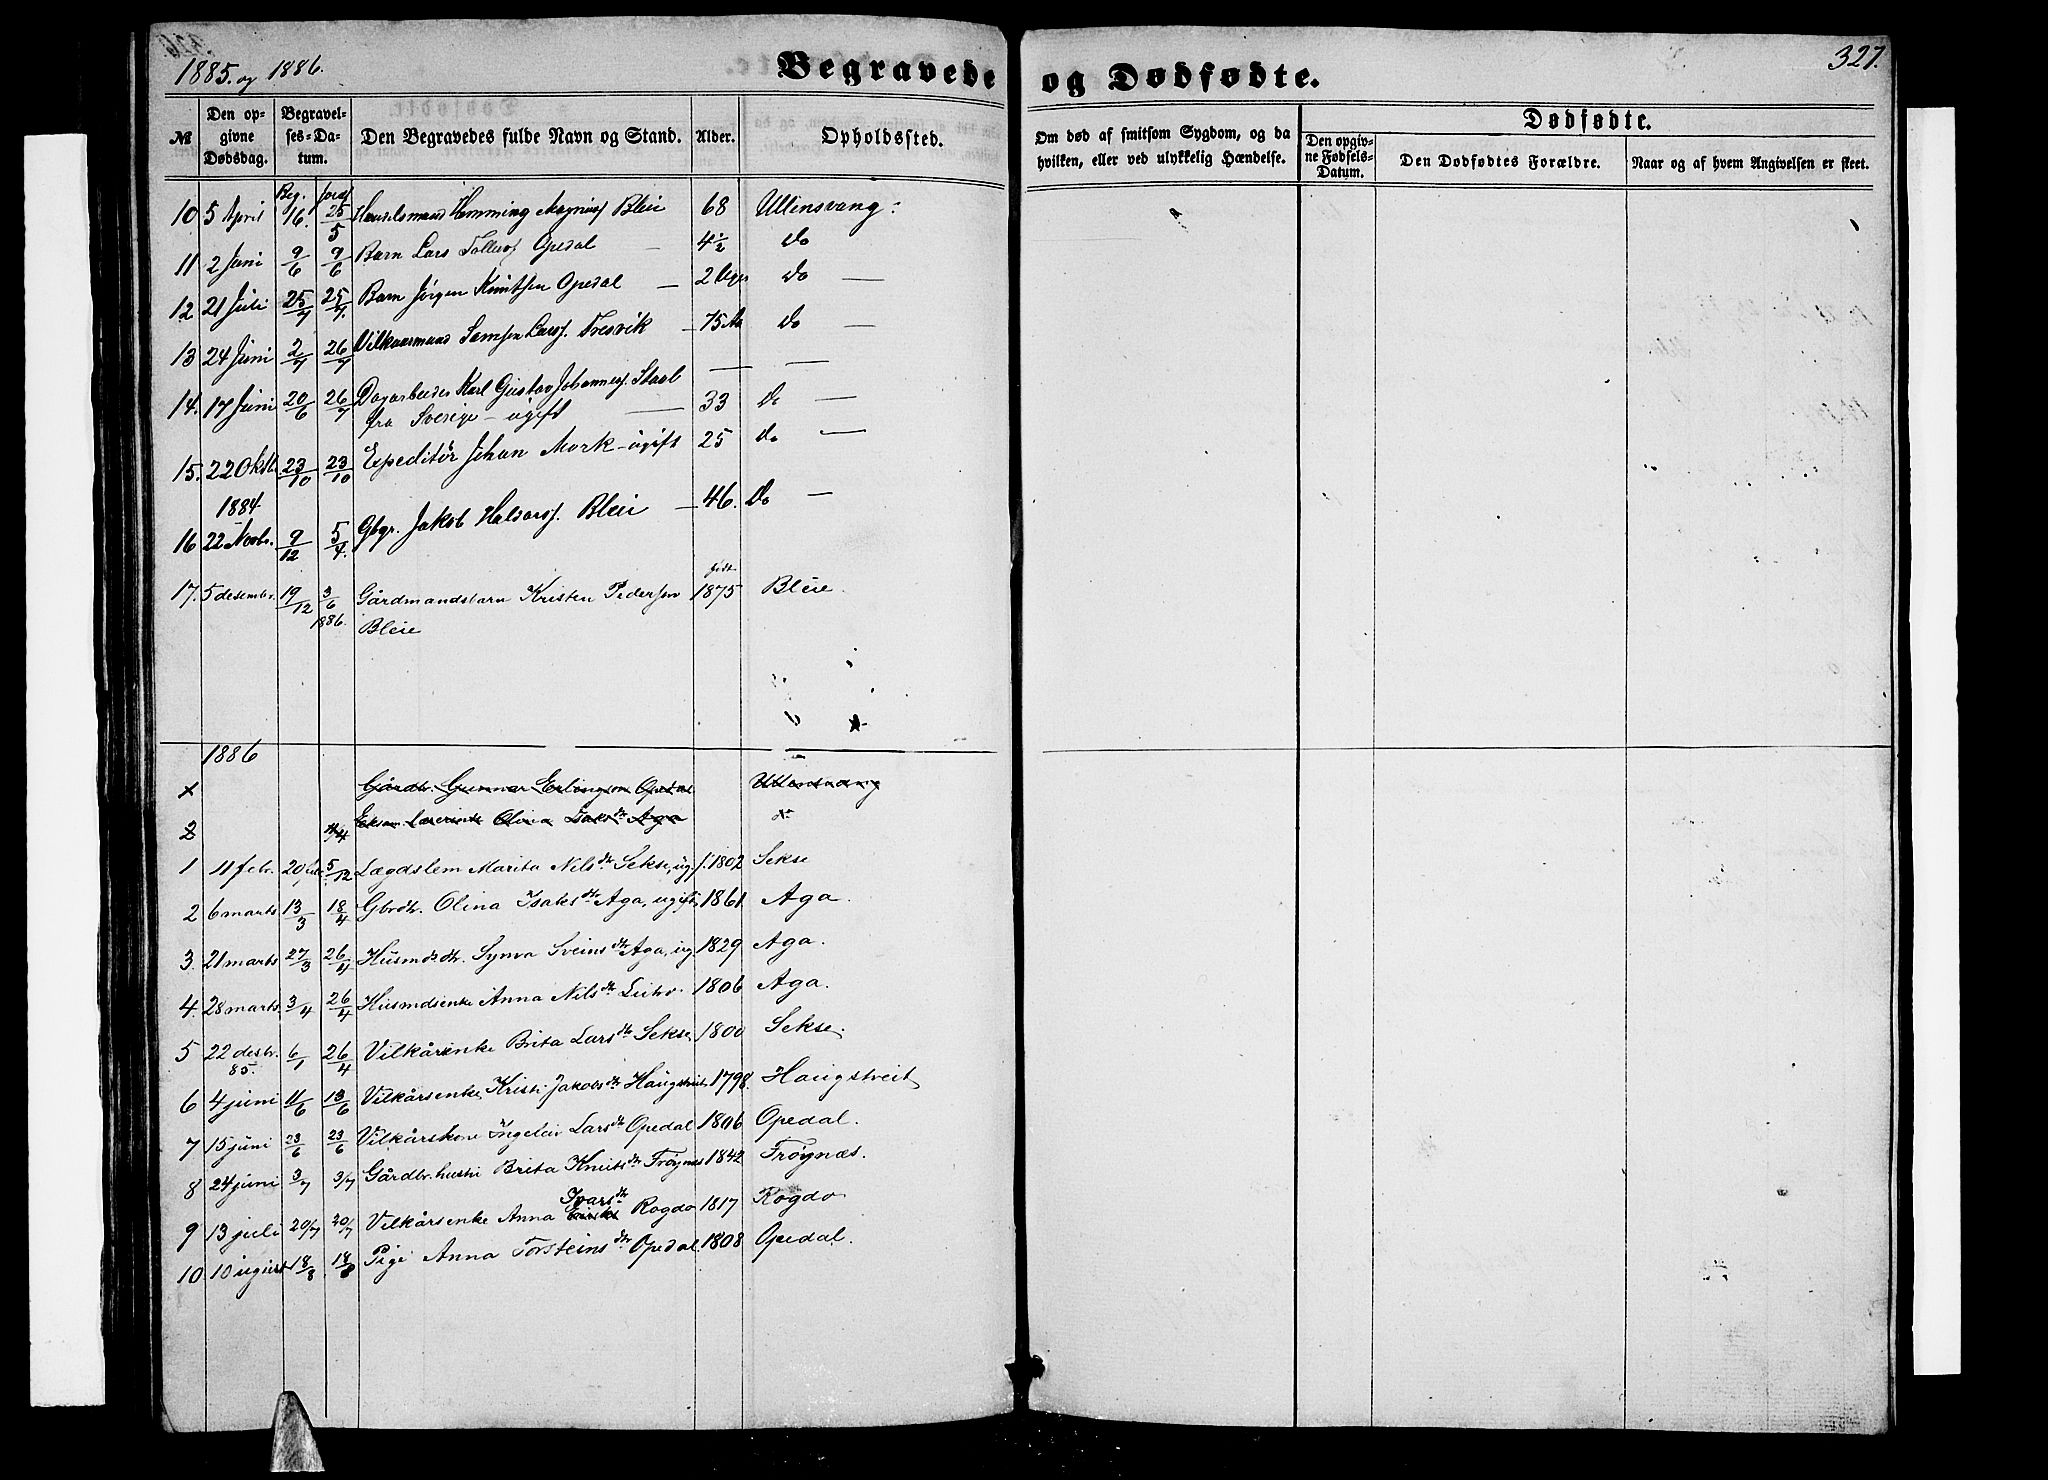 1885. og 1886.
Begravede og Dødfødte.
327.
№
Den opgivne Dødsdag.
Begravelses-Datum.
Den Begravedes fulde Navn og Stand.
Alder.
Opholdssted.
Om død af smitsom Sygdom, og da hvilken, eller ved ulykkelig Hændelse.
Dødfødte.
Den opgivne Fødsels-Datum.
Den Dødfødtes Forældre.
Naar og af hvem Angivelsen er skeet.
Beg. Jordf
10 5 April 16. 25/5 Hemming Bleie 68 Ullensvang
11 2 Juni 9/6 9/6 Barn Lars Opedal 4½ Do
12 21 Juli 25/7 25/7. Barn Jørgen Knutsen Opedal — 2 Uger Do —
13 24 Juni 2/7 26/7 Vilkaarmand Samson Larss. Tresvik — 75 Do —
14. 17 Juni 20/6 26/7 Dagarbeider Karl Gustav Johanness. Staal
fra Sverige — ugift — 33 Do —
15. 22 Oktb 23/10 23/10 Expeditør Johan Mork — ugift 25 Do —
1884
16 22 Novbr. 9/12 5/4. Gbgr. Jakob Haldorss. Bleie — 46. Do —
17. 5 desembr. 19/12 3/6 1886. Gårdmandsbarn Kristen Pedersen født 1875 Bleie.
Bleie
1886
1 Gårdbr. Gunnar Erlingson Opedal Ullensvang
2 Olina Isaksdtr Aga do
1 11 febr. 20/ 5/12 Lægdslem Marita Nilsdtr Sekse, ug. f. 1802 Sekse
2 6 marts 13/3 18/4 Gbrdtr. Olina Isaksdtr Aga, ugift, 1861 Aga.
3. 21 marts 27/3 26/4 Husmdsdtr. Synva Sveinsdtr Aga, ug. 1829 Aga.
4. 28 marts 3/4 26/4 Husmdsenke Anna Nilsdtr 1806 Aga.
5 22 desbr. 85. 6/1 26/4 Vilkårsenke Brita Larsdtr Sekse, 1800 Sekse.
6 4 juni 11/6 13/6 Vilkårsenke Kristi Jakobsdtr Haugstveit 1798. Haugstveit
7 15 juni 23/6 23/6 Vilkårskone Ingeleiv Larsdtr Opedal 1806 Opedal.
8 24 juni 3/7 3/7 Gårdbr. hustru Brita Knutsdtr Frøynæs 1842 Frøynæs.
9 13 juli 20/7 20/7 Vilkårsenke Anna Ivarsdtr Rogdo 1817 Rogdo
10 10 ugust 18/8 18/8 Pige Anna Torsteinsdtr Opedal. 1808 Opedal.